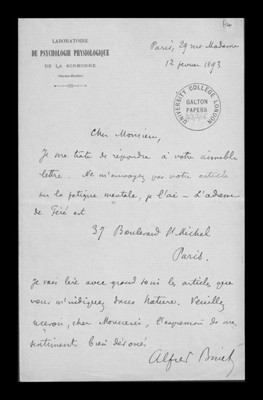 LABORATOIRE
DE PSYCHOLOGIE PHYSIOLOGIQUE
DE LA SORBONNE
(Hautes-Études)
Paris, 29 rue Madame
12 février 1893
UNIVERSITY COLLEGE LONDON
GALTON
PAPERS
Cher Monsieur,
Je me hâte de répondre à votre aimable
lettre. Ne m'envoyez pas votre article
sur la fatigue mentale, je l'ai – L'adresse
de Féré est
37 Boulevard St. Michel
Paris.
Je vais lire avec grand soin les articles que
vous m'indiquez dans Nature. Veuillez
recevoir, cher Monsieur, l'expression de mes
sentiments bien dévoués
Alfred Binet